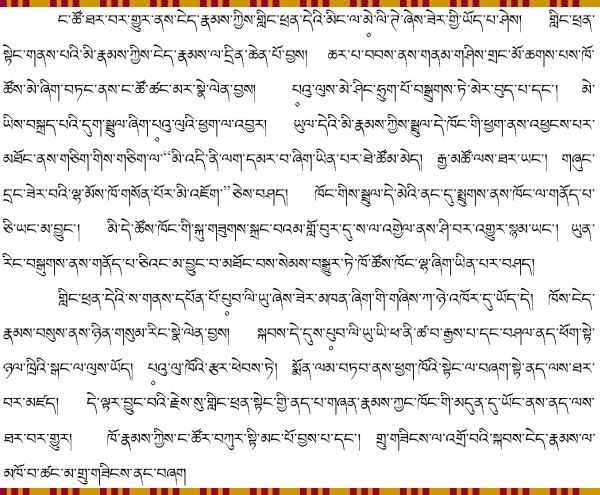 ང་ཚོ་ཐར་བར་གྱུར་ནས་ངེད་རྣམས་ཀྱིས་གླིང་ཕྲན་དེའི་མིང་ལ་མེ་ལི་ཊེ་ཞེས་ཟེར་གྱི་ཡོད་པ་ཤེས། གླིང་ཕྲན་
སྟེང་གནས་པའི་མི་རྣམས་ཀྱིས་ངེད་རྣམས་ལ་དྲིན་ཆེན་པོ་བྱས། ཆར་པ་བབས་ནས་གནམ་གཤིས་གྲང་མོ་ཆགས་པས་ཁོ་
ཚོས་མེ་ཞིག་བཏང་ནས་ང་ཚོ་ཚང་མར་སྣེ་ལེན་བྱས། པཱའུ་ལུས་མེ་ཤིང་ཧྲུག་པོ་བསྒྲུགས་ཏེ་མེར་བུད་པ་དང་། མེ་
ཡིས་བསྐྲད་པའི་དུག་སྦྲུལ་ཞིག་པཱའུ་ལུའི་ཕྱག་ལ་འབྱར། ཡུལ་དེའི་མི་རྣམས་ཀྱིས་སྦྲུལ་དེ་ཁོང་གི་ཕྱག་ནས་འཕྱངས་པར་
མཐོང་ནས་གཅིག་གིས་གཅིག་ལ་“མི་འདི་ནི་ལག་དམར་བ་ཞིག་ཡིན་པར་ཐེ་ཚོམ་མེད། རྒྱ་མཚོ་ལས་ཐར་ཡང་། གཞུང་
དྲང་ཟེར་བའི་ལྷ་མོས་ཁོ་གསོན་པོར་མི་འཇོག་”ཅེས་བཤད། ཁོང་གིས་སྦྲུལ་དེ་མེའི་ནང་དུ་སྤྲུགས་ནས་ཁོང་ལ་གནོད་པ་
ཅི་ཡང་མ་བྱུང་། མི་དེ་ཚོས་ཁོང་གི་སྐུ་གཟུགས་སྐྲང་བའམ་གློ་བུར་དུ་ས་ལ་འགྱེལ་ནས་ཤི་བར་འགྱུར་སྙམ་ཡང་། ཡུན་
རིང་བསྒུགས་ནས་གནོད་པ་ཅིའང་མ་བྱུང་བ་མཐོང་བས་སེམས་བསྒྱུར་ཏེ་ཁོ་ཚོས་ཁོང་ལྷ་ཞིག་ཡིན་པར་བཤད།
གླིང་ཕྲན་དེའི་ས་གནས་དཔོན་པོ་པུབ་ལི་ཡུ་ཞེས་ཟེར་མཁན་ཞིག་གི་གཞིས་ཀ་ཉེ་འཁོར་དུ་ཡོད་དེ། ཁོས་ངེད་
རྣམས་བསུས་ནས་ཉིན་གསུམ་རིང་སྣེ་ལེན་བྱས། སྐབས་དེ་དུས་པུབ་ལི་ཡུ་ཡི་ཕ་ནི་ཚ་བ་རྒྱས་པ་དང་བཤལ་ནད་ཕོག་སྟེ་
ཉལ་ཁྲིའི་སྒང་ལ་ལུས་ཡོད། པཱའུ་ལུ་ཁོའི་རྩར་ཕེབས་ཏེ། སྨོན་ལམ་བཏབ་ནས་ཕྱག་ཁོའི་སྟེང་ལ་བཞག་སྟེ་ནད་ལས་ཐར་
བར་མཛད། དེ་ལྟར་བྱུང་བའི་རྗེས་སུ་གླིང་ཕྲན་སྟེང་གྱི་ནད་པ་གཞན་རྣམས་ཀྱང་ཁོང་གི་མདུན་དུ་ཡོང་ནས་ནད་ལས་
ཐར་བར་གྱུར། ཁོ་རྣམས་ཀྱིས་ང་ཚོར་བཀུར་སྟི་མང་པོ་བྱས་པ་དང་། གྲུ་གཟིངས་ལ་འགྲོ་བའི་སྐབས་ངེད་རྣམས་ལ་
མཁོ་བ་ཚང་མ་གྲུ་གཟིངས་ནང་བཞག